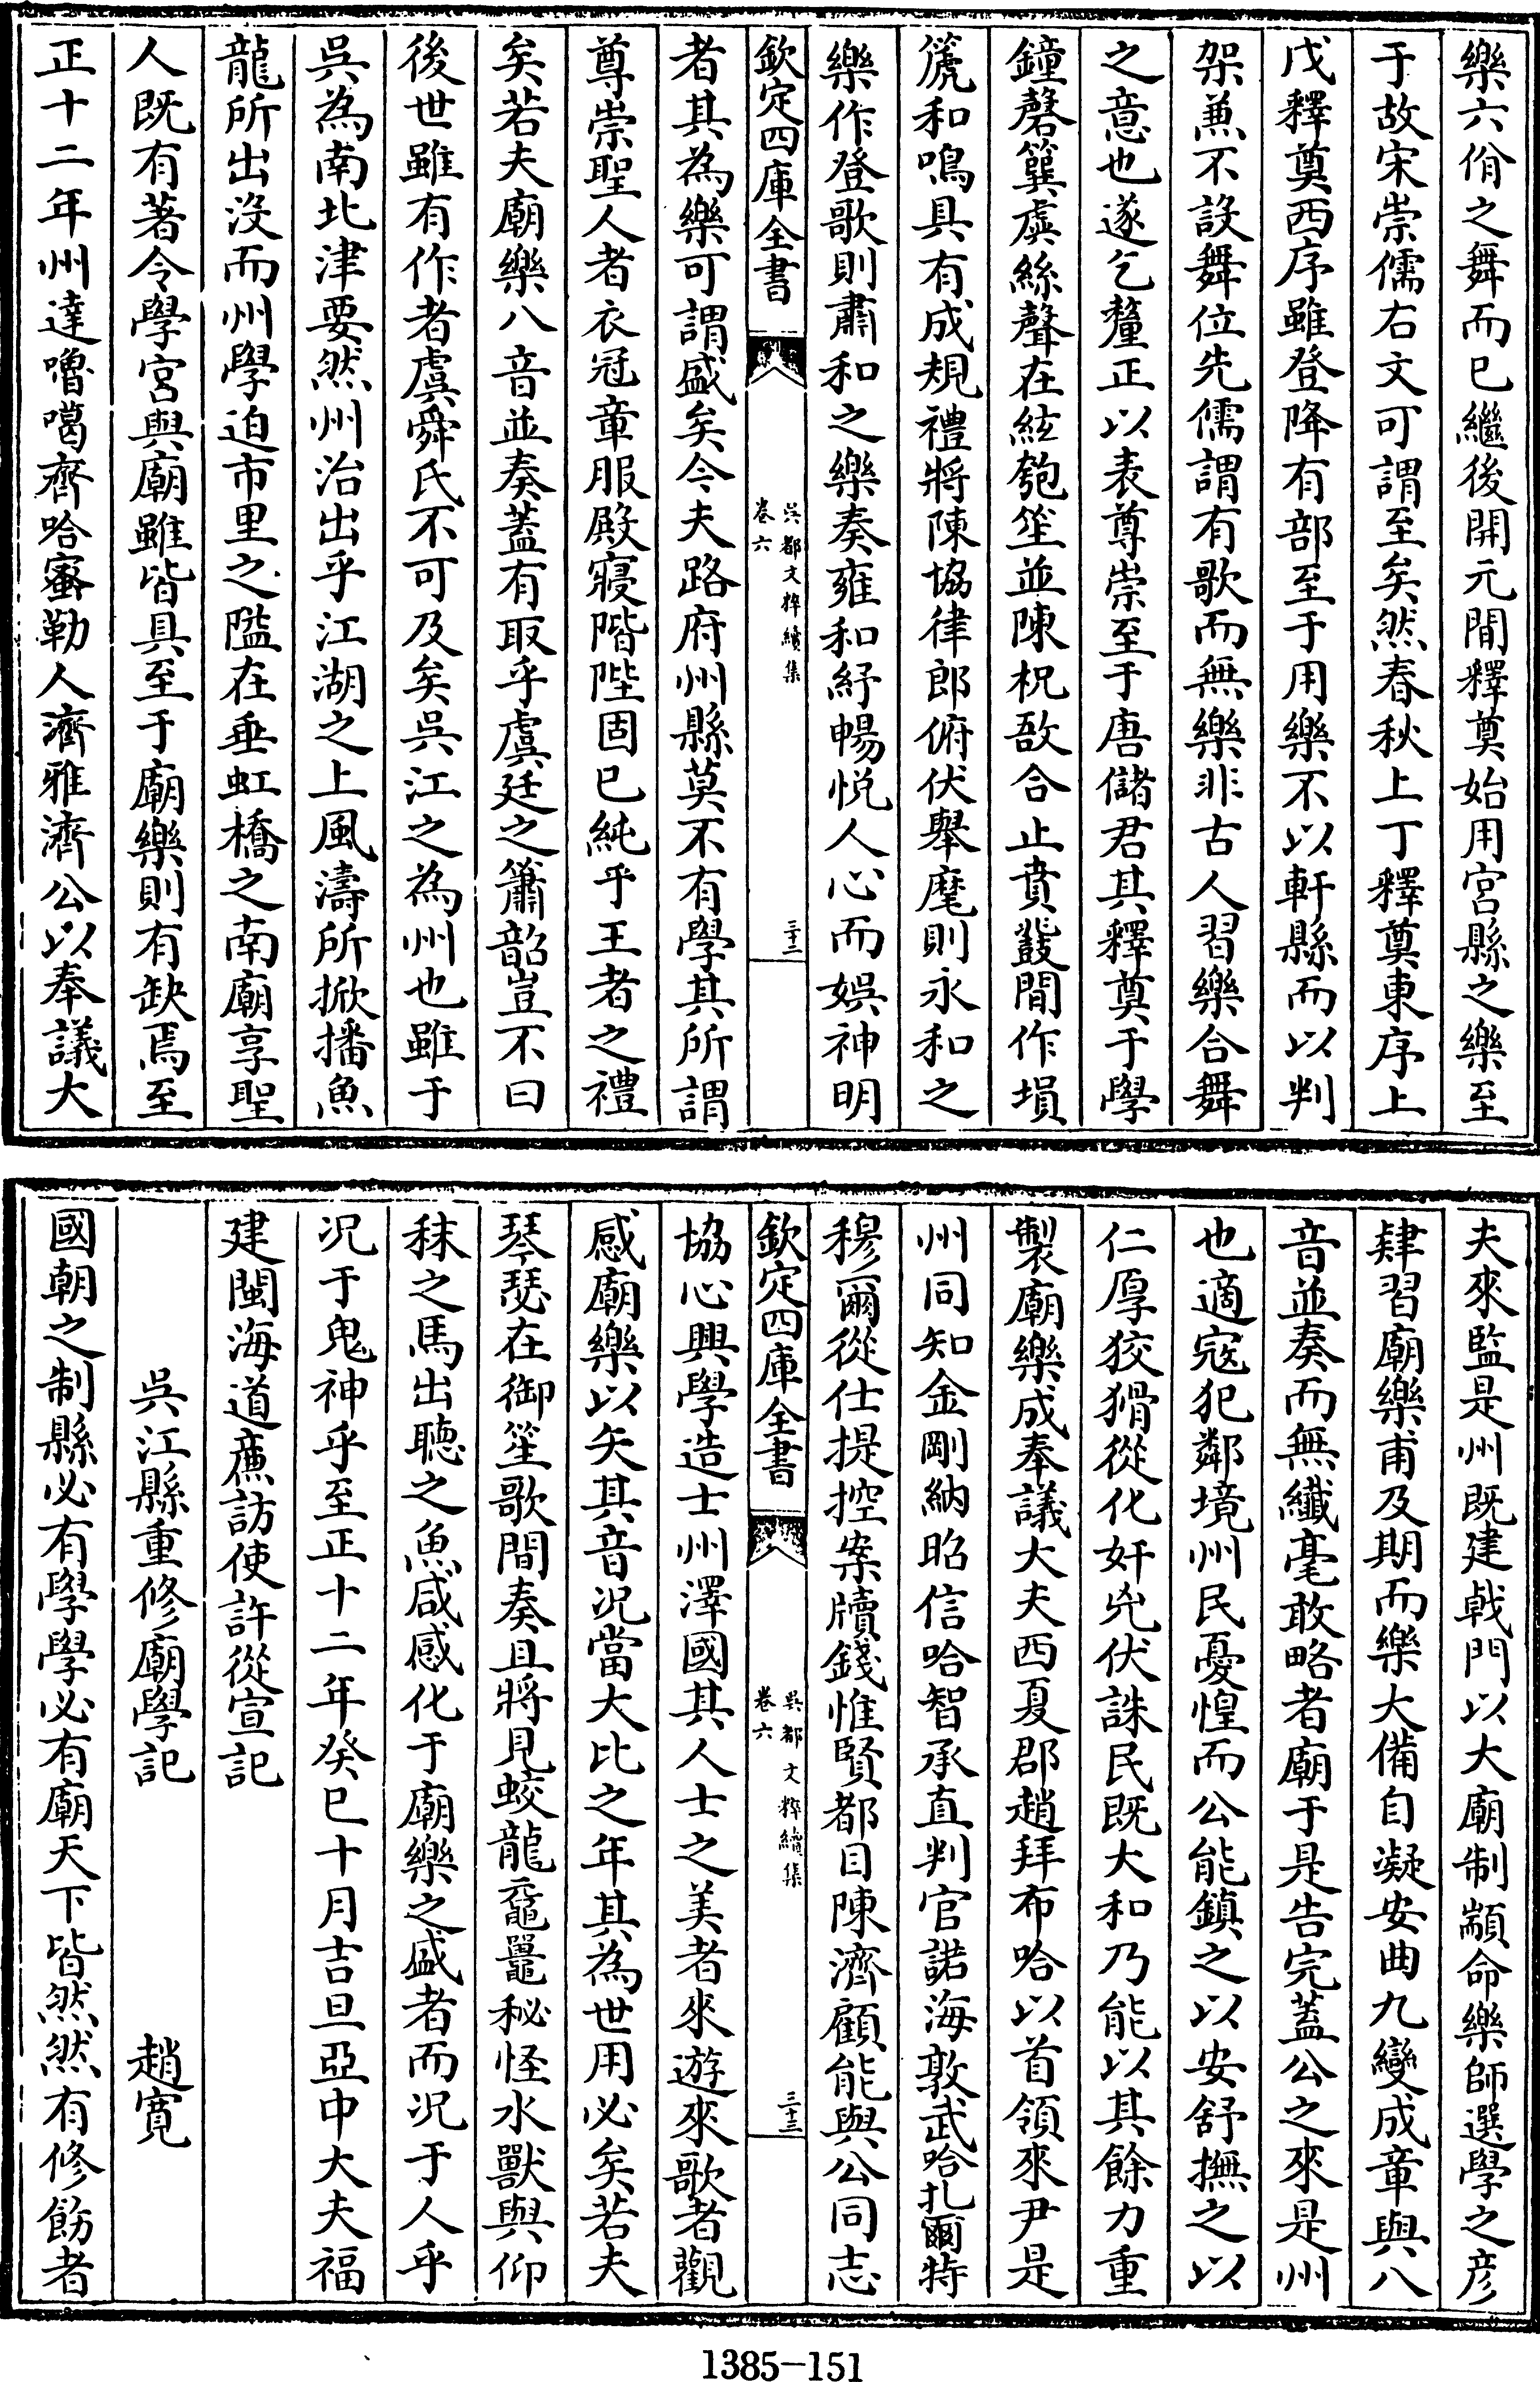 樂六佾之舞而已繼後開元間釋奠始用宮縣之樂至
于故宋崇儒右文可謂至矣然春秋上丁釋奠東序上
戊釋奠西序雖登降有部至于用樂不以軒縣而以判
架兼不設舞位先儒謂有歌而無樂非古人習樂合舞
之意也遂乞釐正以表尊崇至于唐儲君其釋奠于學
鐘磬簨虡絲聲在絃匏笙並陳柷敔合止賁鼖間作塤
篪和鳴具有成規禮將陳協律郎俯伏舉麾則永和之
樂作登歌則肅和之樂奏雍和紓暢悅人心而娛神明
欽定四庫全書
吳都文粹續集
卷六
三十二
者其為樂可謂盛矣今夫路府州縣莫不有學其所謂
尊崇聖人者衣冠章服殿寢階陛固已純乎王者之禮
矣若夫廟樂八音並奏蓋有取乎虞廷之簫韶豈不曰
後世雖有作者虞舜氏不可及矣吳江之為州也雖于
吳為南北津要然州治出乎江湖之上風濤所掀播魚
龍所出沒而州學迫市里之隘在垂虹橋之南廟享聖
人既有著令學宮與廟雖皆具至于廟樂則有缺焉至
正十二年州達嚕噶齊哈宻勒人濟雅濟公以奉議大
夫來監是州既建戟門以大廟制顓命樂師選學之彥
肄習廟樂甫及期而樂大備自凝安曲九變成章與八
音並奏而無纖毫敢略者廟于是告完蓋公之來是州
也適寇犯鄰境州民憂惶而公能鎮之以安舒撫之以
仁厚狡猾從化奸兇伏誅民既大和乃能以其餘力重
製廟樂成奉議大夫西夏郡趙拜布哈以首領來尹是
州同知金剛納昭信哈智承直判官諾海敦武哈扎爾特
穆爾從仕提控案牘錢惟賢都目陳濟顧能與公同志
欽定四庫全書
吳都文粹續集
卷六
三十三
協心興學造士州澤國其人士之美者來遊來歌者觀
感廟樂以矢其音況當大比之年其為世用必矣若夫
琴瑟在御笙歌間奏且將見蛟龍黿鼉秘怪水獸與仰
秣之馬出聽之魚咸感化于廟樂之盛者而況于人乎
況于鬼神乎至正十二年癸巳十月吉旦亞中大夫福
建閩海道亷訪使許從宣記
吳江縣重修廟學記 趙寬
國朝之制縣必有學學必有廟天下皆然然有修飭者
1385-151